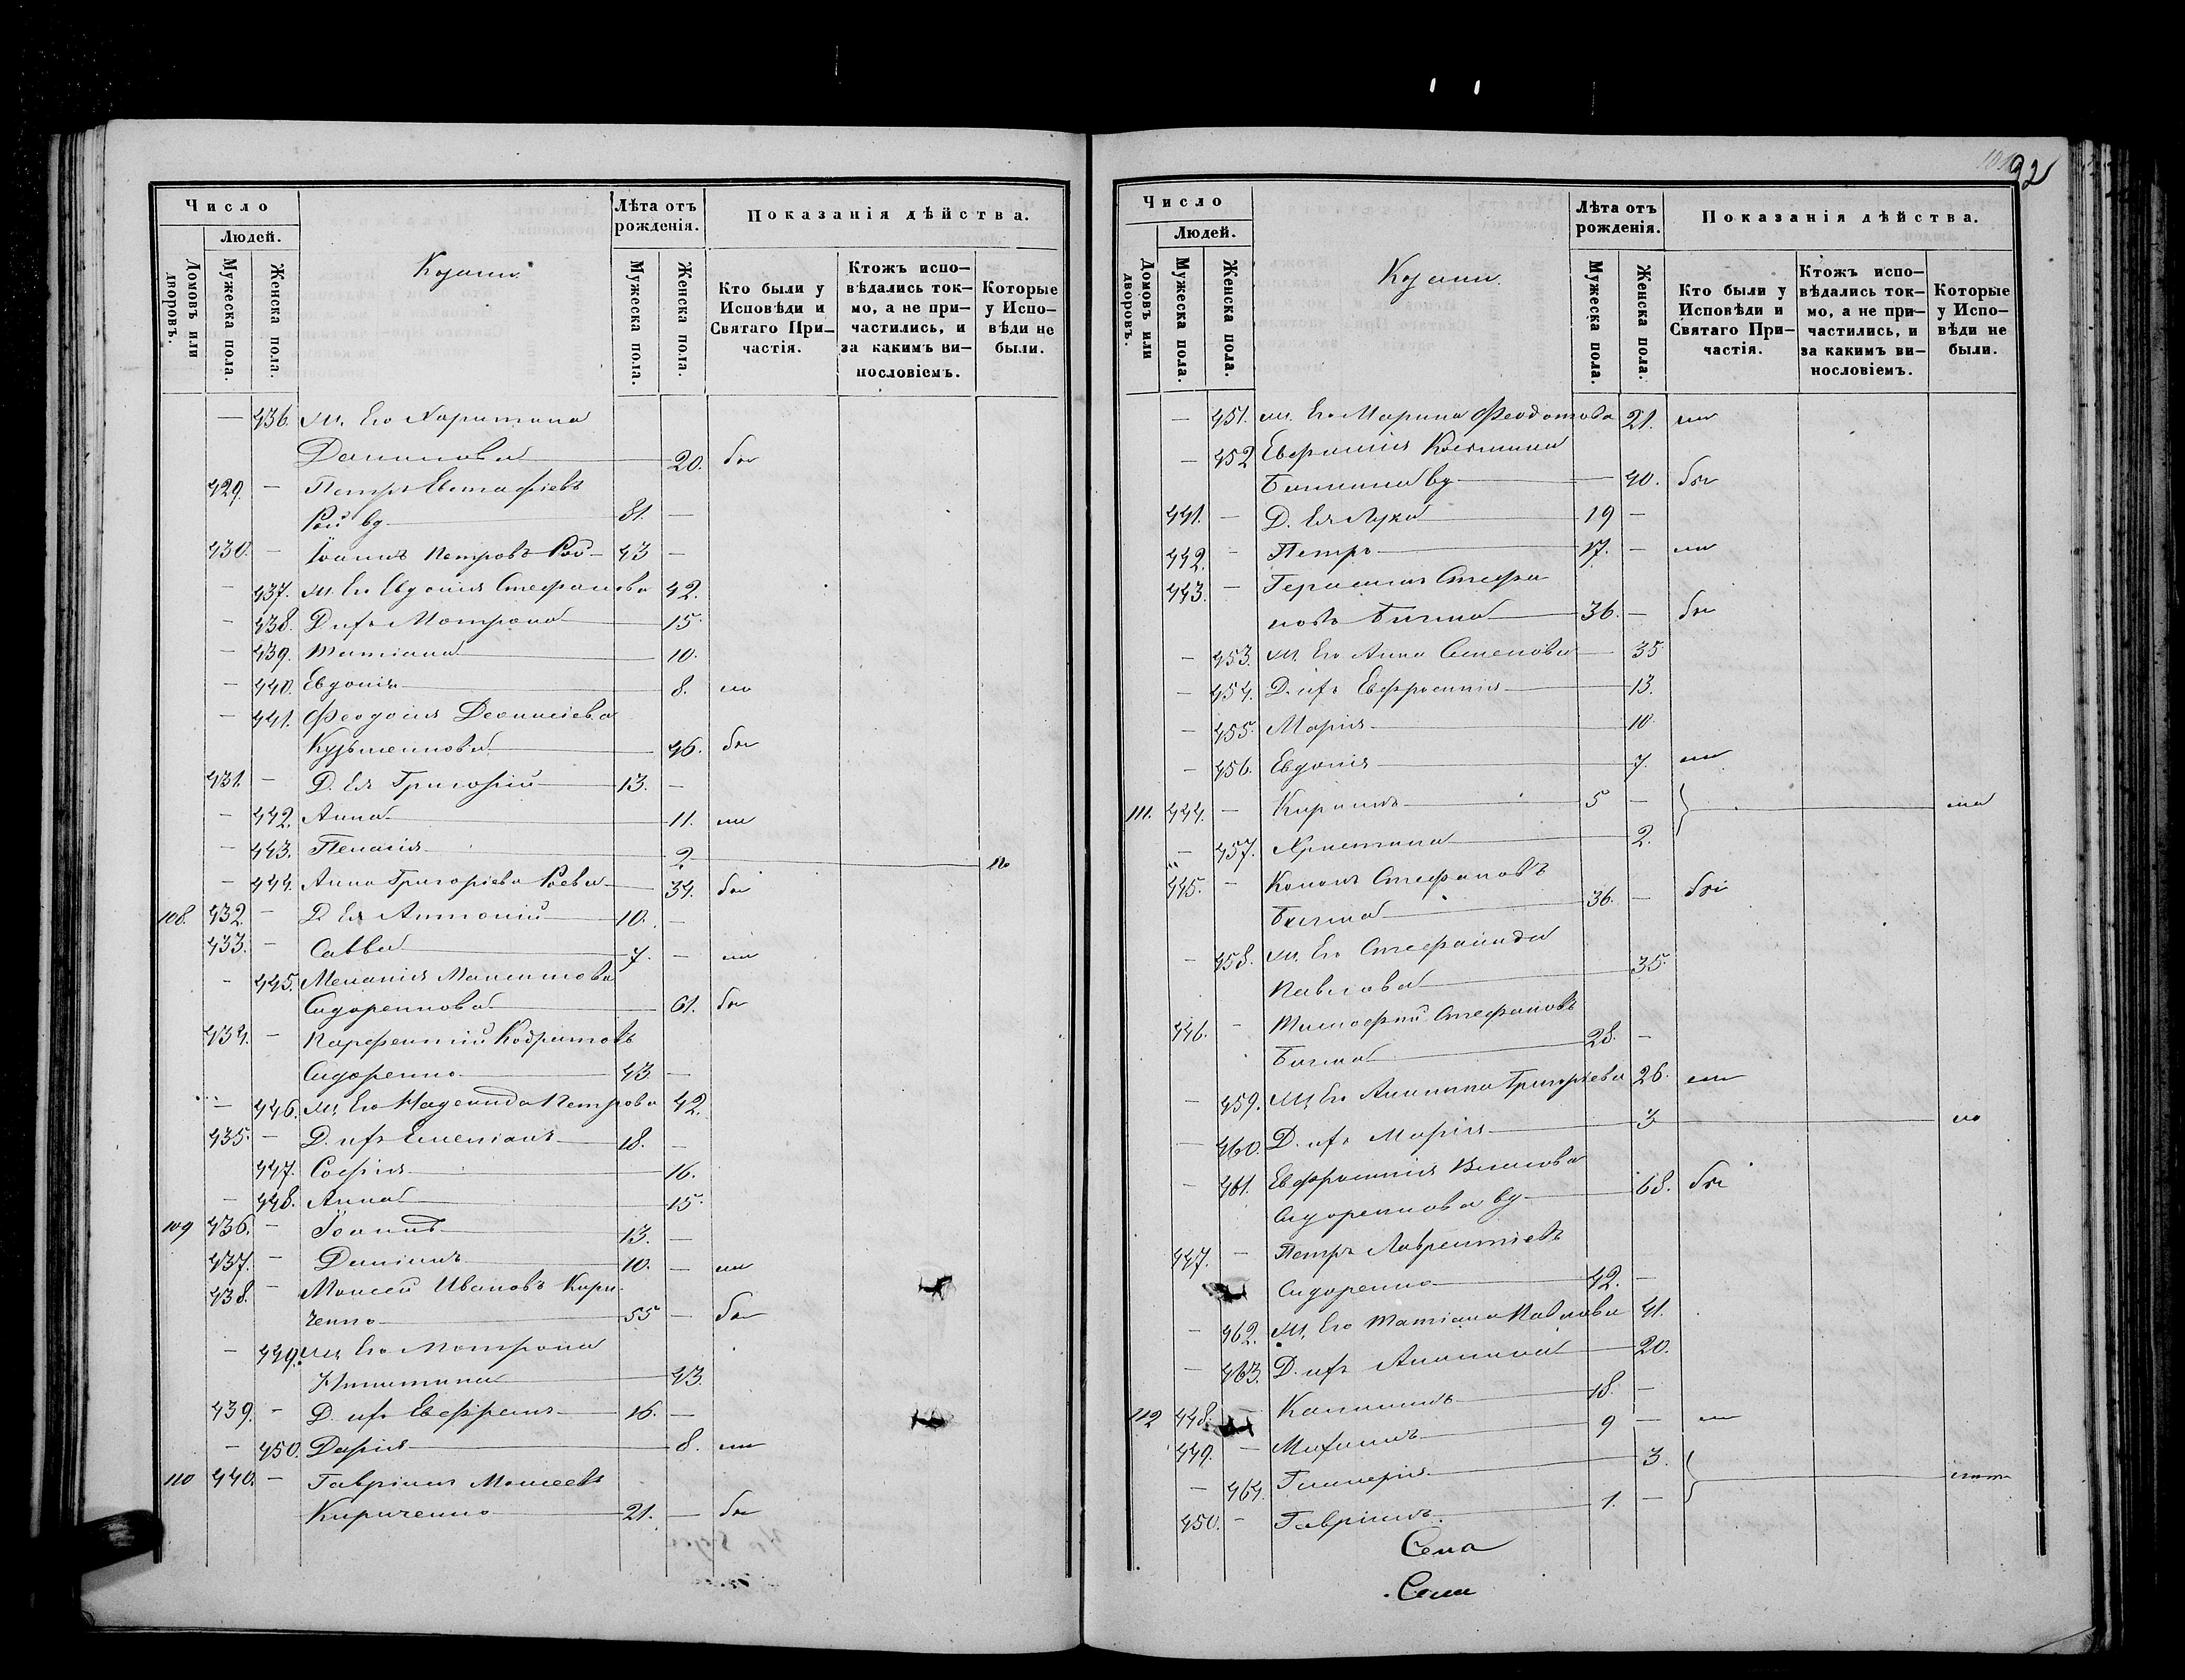 Число
Людей.
Домовъ или дворовъ.
Мужеска пола.
Женска пола.
Козаки.
Лѣта отъ рожденія.
Мужеска пола.
Женска пола.
Показанія дѣйства.
Кто были у Исповѣди и Святаго Причастія.
Ктожъ исповѣдались токмо, а не причастились, и за какимъ винословіемъ.
Которые у Исповѣди не были.
— 436. Ж. Его Харитина
Данилова 20.
429. — Петръ Евстафіевъ
Рой вд 81. —
430. — Іоаннъ Петровъ Рой 43 —
— 437. Ж. Его Евдокія Стефанова 42.
— 438. Д. ихъ Мотрона 15.
— 439. Татіана 10.
— 440. Евдокія 8.
— 441. Феодосія Деонисіева
Кузьменкова 46.
431. — Д. Ея Григорій 13. —
— 442. Анна 11.
— 443. Пелагія 2
— 444. Анна Григоріева Роева 34.
108. 432. — Д. Ея Антоній 10. —
433. — Савва 7. —
— 445. Меланія
Сидоренкова 61.
434. — Парфентій Кодратовъ
Сидоренко 43 —
— 446. Ж. Его Надежда Петрова 42.
435. — Д. ихъ Емеліанъ 18. —
447. Софія 16.
— 448. Анна 15.
109 436. — Іоаннъ 13. —
437. — Даніилъ 10. —
438. — Моисей Ивановъ Кири
ченко 55 —
— 449. Ж. Его Мотрона
Никитина 43.
439. — Д. ихъ Евфремъ 16. —
— 450. Дарія 8.
110 440. — Гавріилъ Моисеевъ
Кириченко 21. —
92
Число
Людей.
Домовъ или дворовъ.
Мужеска пола.
Женска пола.
Козаки.
Лѣта отъ рожденія.
Мужеска пола.
Женска пола.
Показанія дѣйства.
Кто были у Исповѣди и Святаго Причастія.
Ктожъ исповѣдались токмо, а не причастились, и за какимъ винословіемъ.
Которые у Исповѣди не были.
— 451. Ж. Его Марина Феодотова 21.
— 452
вд 40.
441. — Д. Ея Лука 19 —
442. — Петръ 17. —
443. — Герасимъ Стефа
новъ 36. —
— 453. Ж. Его Анна Семенова 35
— 454. Д. ихъ Евфросинія 13.
— 455. Марія 10.
— 456. Евдокія 7.
111. 444. — Кирилъ 5 —
— 457. Христина 2.
445. — Кононъ Стефановъ
36. —
— 458. Ж. Его Стефанида
Павлова 35.
446. — Тимофей Стефановъ
28. —
— 459. Ж. Его Акилина Григоріева 26.
— 460. Д. ихъ Марія 3
— 461. Евфросинія Власова
Сидоренкова вд 68.
447. — Петръ Лаврентіевъ
Сидоренко 42. —
— 462. Ж. Его Татіана Павлова 41.
— 463. Д. ихъ Акилина 20.
112 448. — 18. —
449. — Михаилъ 9 —
— 464. Гликерія 3.
450. — Гавріилъ 1. —